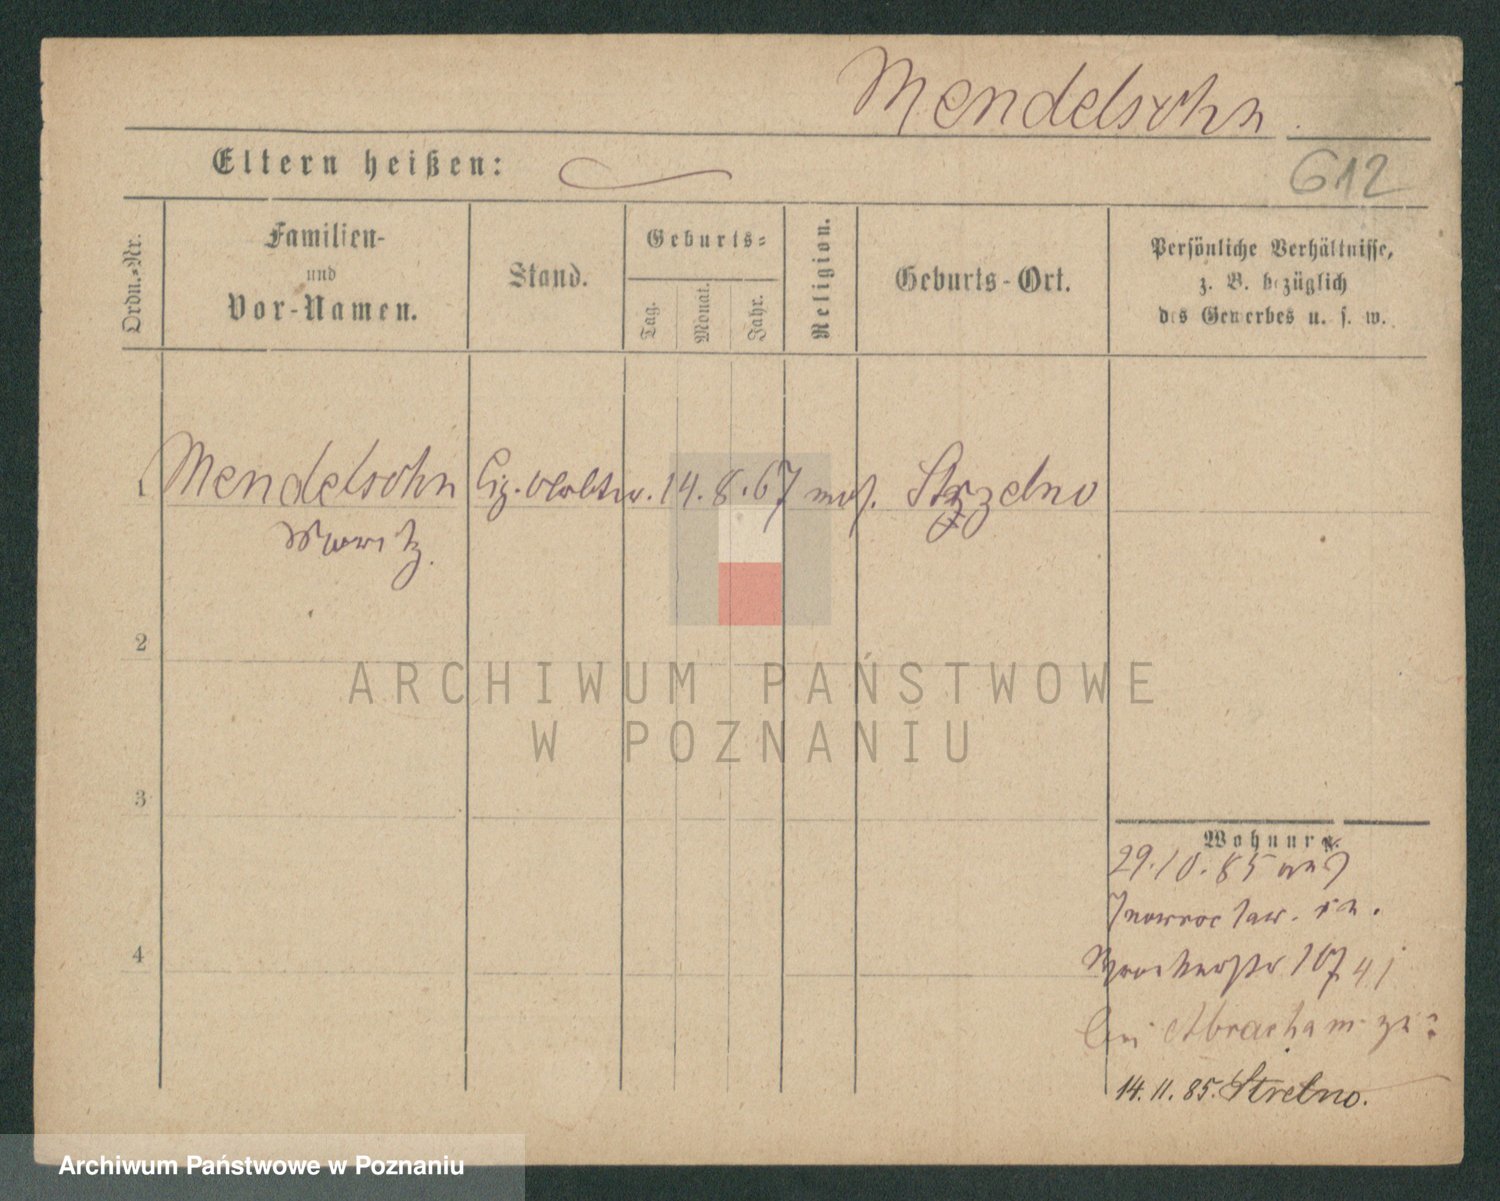 Mendelsohn
612
Eltern heißen:
Ordn.-Nr.
Familien-
und
Vor-Namen.
Stand.
Geburts-
Tag.
Monat.
Jahr.
Religion.
Geburts-Ort.
Persönliche Verhältnisse,
z. B. bezüglich
des Gewerbes u. s. w.
1 Mendelsohn Cig. 14. 8. 67 mos. Strzelno
Moritz.
2
ARCHIWUM PAŃSTWOWE
W POZNANIU
3
Wohnung.
29.10.85 aus
Inowraclaw.
4
107
bei Abraham
14. 11. 85. Strelno.
Archiwum Państwowe w Poznaniu